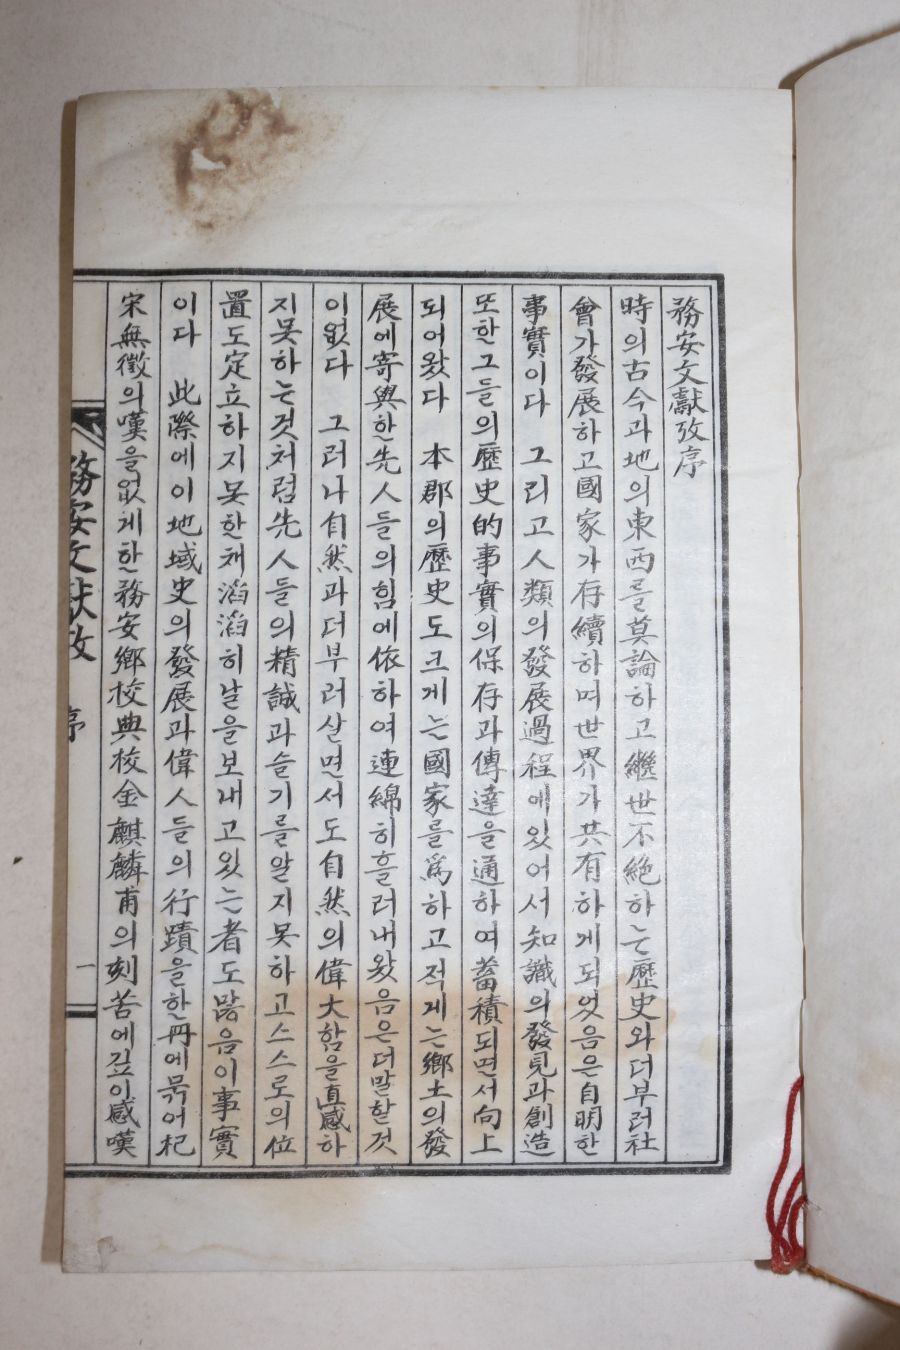 務安文獻攷序
時의古今과地의東西를莫論하고繼世不絶하는歷史와더부러社
會가發展하고國家가存續하며世界가共有하게되었음은自明한
事實이다 그리고人類의發展過程에있어서知識의發見과創造
또한그들의歷史的事實의保存과傳達을通하여蓄積되면서向上
되어왔다 本郡의歷史도크게는國家를爲하고적게는鄕土의發
展에寄與한先人들의힘에依하여連綿히흘러내왔음은더말할것
이없다 그러나自然과더부러살면서도自然의偉大함을直感하
지못하는것처럼先人들의精誠과슬기를알지못하고스스로의位
置도定立하지못한채滔滔히날을보내고있는者도많음이事實
이다 此際에이地域史의發展과偉人들의行蹟을한冊에묶어杞
宋無徵의嘆을없게한務安鄕校典校金麒麟甫의刻苦에깊이感嘆
務安文獻攷 序 一